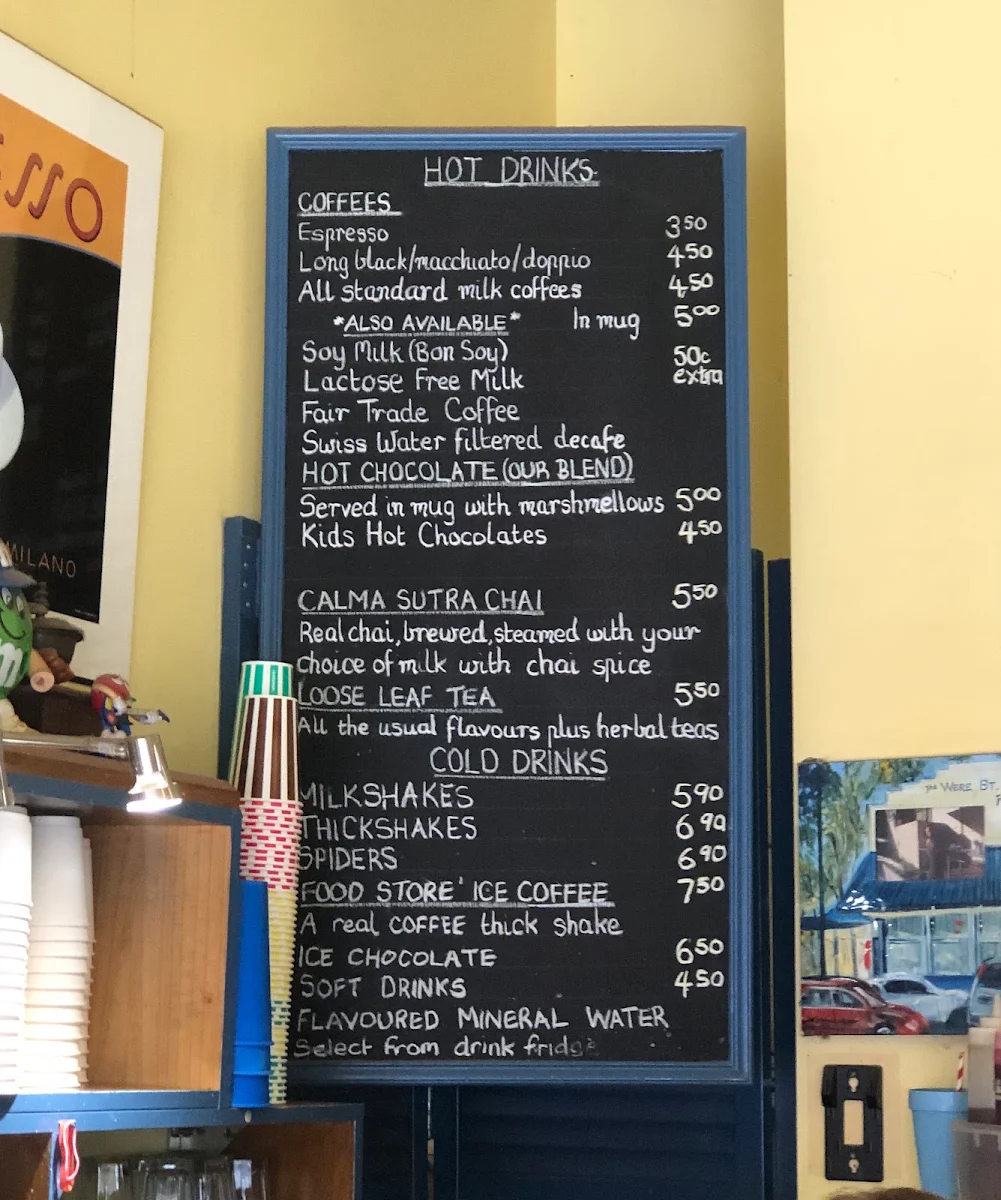 SSO
MILANO
m
HOT DRINKS
COFFEES
Espresso 3 50
Long black/macchiato/doppio 4 50
All standard milk coffees 4 50
*ALSO AVAILABLE* In mug 5 00
Soy Milk (Bon Soy) 50c
Lactose Free Milk extra
Fair Trade Coffee
Swiss Water filtered decafe
HOT CHOCOLATE (OUR BLEND)
Served in mug with marshmellows 5 00
Kids Hot Chocolates 4 50
CALMA SUTRA CHAI 5 50
Real chai, brewed, steamed with your
choice of milk with chai spice
LOOSE LEAF TEA 5 50
All the usual flavours plus herbal teas
COLD DRINKS
MILKSHAKES 5 90
THICKSHAKES 6 90
SPIDERS 6 90
FOOD STORE' ICE COFFEE 7 50
A real COFFEE thick shake
ICE CHOCOLATE 6 50
SOFT DRINKS 4 50
FLAVOURED MINERAL WATER
Select from drink fridge
THE WERE ST.